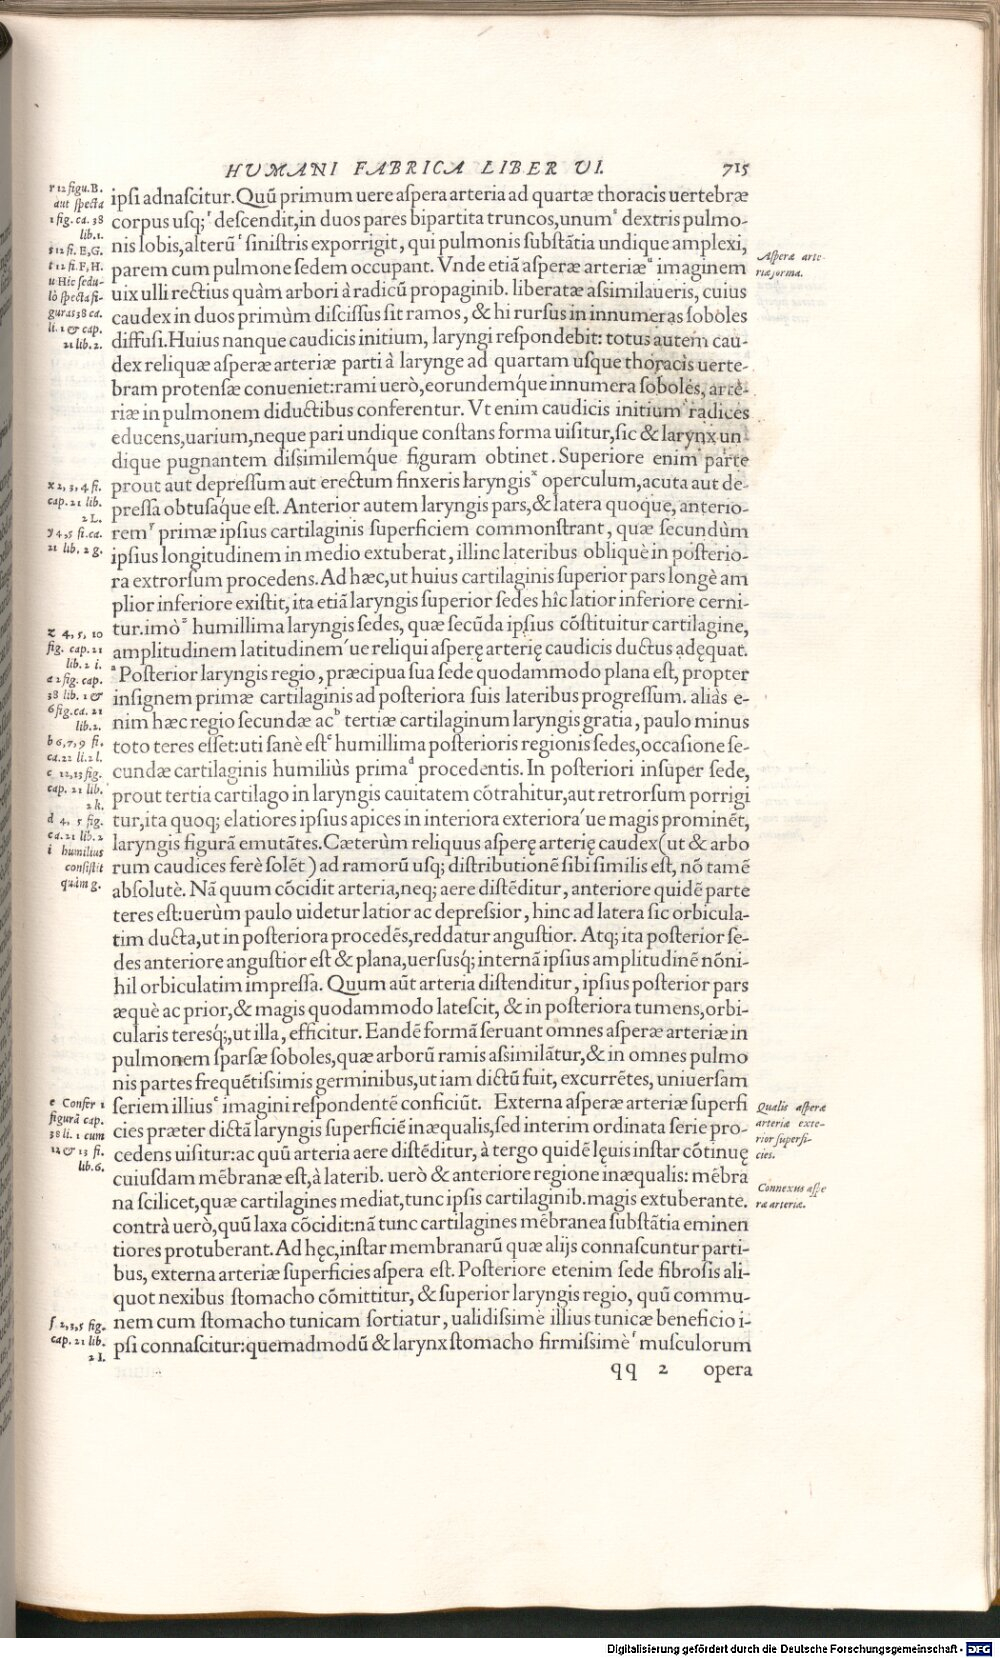 HVMANI FABRICA LIBER VI. 715
ipſi adnaſcitur. Quū primum uere aſpera arteria ad quartæ thoracis uertebræ
corpus uſq; ͬ deſcendit, in duos pares bipartita truncos, unum ˢ dextris pulmo-
nis lobis, alterū ᵗ ſiniſtris exporrigit, qui pulmonis ſubſtātia undique amplexi,
parem cum pulmone ſedem occupant. Vnde etiā aſperæ arteriæ ᵘ imaginem
uix ulli rectius quàm arbori à radicū propaginib. liberatæ aſsimilaueris, cuius
caudex in duos primùm diſciſſus ſit ramos, & hi rurſus in innumeras ſoboles
diffuſi. Huius nanque caudicis initium, laryngi reſpondebit: totus autem cau-
dex reliquæ aſperæ arteriæ parti à larynge ad quartam uſque thoracis uerte-
bram protenſæ conueniet: rami uerò, eorundemq́ue innumera ſoboles, arte-
riæ in pulmonem diductibus conferentur. Vt enim caudicis initium radices
educens, uarium, neque pari undique conſtans forma uiſitur, ſic & larynx un-
dique pugnantem diſsimilemq́ue figuram obtinet. Superiore enim parte
prout aut depreſſum aut erectum finxeris laryngis ˣ operculum, acuta aut de-
preſſa obtuſaq́ue eſt. Anterior autem laryngis pars, & latera quoque, anterio-
rem ʸ primæ ipſius cartilaginis ſuperficiem commonſtrant, quæ ſecundùm
ipſius longitudinem in medio extuberat, illinc lateribus obliquè in poſterio-
ra extrorſum procedens. Ad hæc, ut huius cartilaginis ſuperior pars longè am
plior inferiore exiſtit, ita etiā laryngis ſuperior ſedes hîc latior inferiore cerni-
tur. imò ᶻ humillima laryngis ſedes, quæ ſecūda ipſius cōſtituitur cartilagine,
amplitudinem latitudinem´ue reliqui aſperę arterię caudicis ductus adęquat.
ᵃ Poſterior laryngis regio, præcipua ſua ſede quodammodo plana eſt, propter
inſignem primæ cartilaginis ad poſteriora ſuis lateribus progreſſum. aliàs e-
nim hæc regio ſecundæ ac ᵇ tertiæ cartilaginum laryngis gratia, paulo minus
toto teres eſſet: uti ſanè eſt ᶜ humillima poſterioris regionis ſedes, occaſione ſe-
cundæ cartilaginis humiliùs prima ᵈ procedentis. In poſteriori inſuper ſede,
prout tertia cartilago in laryngis cauitatem cōtrahitur, aut retrorſum porrigi
tur, ita quoq; elatiores ipſius apices in interiora exteriora´ue magis prominēt,
laryngis figurā emutātes. Cæterùm reliquus aſperę arterię caudex (ut & arbo
rum caudices ferè ſolēt) ad ramorū uſq; diſtributionē ſibi ſimilis eſt, nō tamē
abſolutè. Nā quum cōcidit arteria, neq; aere diſtēditur, anteriore quidē parte
teres eſt: uerùm paulo uidetur latior ac depreſsior, hinc ad latera ſic orbicula-
tim ducta, ut in poſteriora procedēs, reddatur anguſtior. Atq; ita poſterior ſe-
des anteriore anguſtior eſt & plana, uerſusq́; internā ipſius amplitudinē nōni-
hil orbiculatim impreſſa. Quum aūt arteria diſtenditur, ipſius poſterior pars
æquè ac prior, & magis quodammodo lateſcit, & in poſteriora tumens, orbi-
cularis teresq́;, ut illa, efficitur. Eandē formā ſeruant omnes aſperæ arteriæ in
pulmonem ſparſæ ſoboles, quæ arborū ramis aſsimilātur, & in omnes pulmo
nis partes frequētiſsimis germinibus, ut iam dictū fuit, excurrētes, uniuerſam
ſeriem illius ᵉ imagini reſpondentē conficiūt. Externa aſperæ arteriæ ſuperfi
cies præter dictā laryngis ſuperficiē inæqualis, ſed interim ordinata ſerie pro-
cedens uiſitur: ac quū arteria aere diſtēditur, à tergo quidē lęuis inſtar cōtinuę
cuiuſdam mēbranæ eſt, à laterib. uerò & anteriore regione inæqualis: mēbra
na ſcilicet, quæ cartilagines mediat, tunc ipſis cartilaginib. magis extuberante.
contrà uerò, quū laxa cōcidit: nā tunc cartilagines mēbranea ſubſtātia eminen
tiores protuberant. Ad hęc, inſtar membranarū quæ alijs connaſcuntur parti-
bus, externa arteriæ ſuperficies aſpera eſt. Poſteriore etenim ſede fibroſis ali-
quot nexibus ſtomacho cōmittitur, & ſuperior laryngis regio, quū commu-
nem cum ſtomacho tunicam ſortiatur, ualidiſsimè illius tunicæ beneficio i-
pſi connaſcitur: quemadmodū & larynx ſtomacho firmiſsimè ᶠ muſculorum
qq 2 opera
r 12 figu. B.
aut ſpecta
1 fig. ca. 38
lib. 1.
s 12 fi. E, G.
t 12 fi. F, H.
u Hic ſedu-
lò ſpecta fi-
guras 38 ca.
li. 1 & cap.
21 lib. 2.
x 2, 3, 4 fi.
cap. 21 lib.
2 L.
y 4, 5 fi. ca.
21 lib. 2 g.
z 4, 5, 10
fig. cap. 21
lib. 2 i.
a 2 fig. cap.
38 lib. 1 &
6 fig. ca. 21
lib. 2.
b 6, 7, 9 fi.
ca. 22 li. 2 l.
c 12, 13 fig.
cap. 21 lib.
2 k.
d 4, 5 fig.
ca. 21 lib. 2
i humilius
conſiſtit
quàm g.
e Confer 1
figurā cap.
38 li. 1 cum
12 & 13 fi.
lib. 6.
f 2, 3, 5 fig.
cap. 21 lib.
2 I.
Aſperæ arte-
riæ forma.
Qualis aſperæ
arteriæ exte-
rior ſuperfi-
cies.
Connexus aſpe
ræ arteriæ.
Digitalisierung gefördert durch die Deutsche Forschungsgemeinschaft - DFG